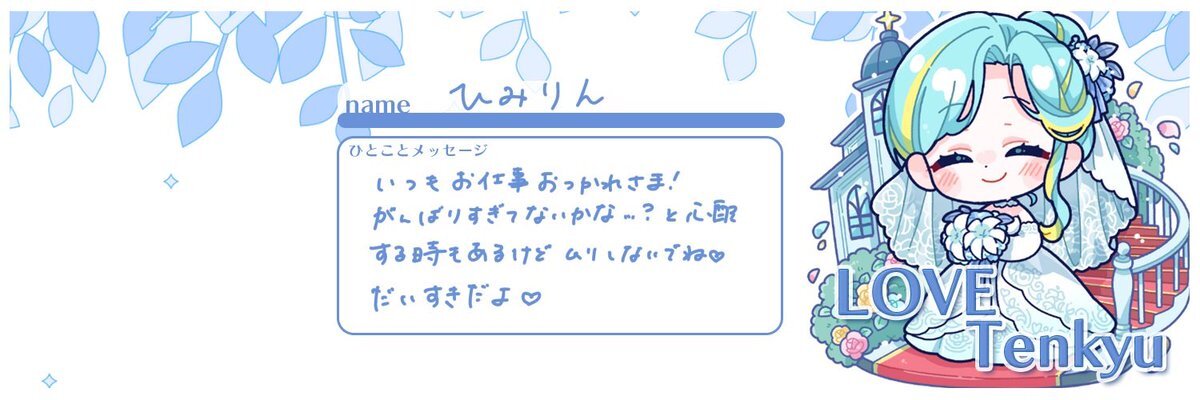 name ひみりん
ひとことメッセージ
いつも お仕事 おつかれさま!
がんばりすぎてないかな…?と心配
する時もあるけど ムリしないでね♡
だいすきだよ♡
LOVE
Tenkyu